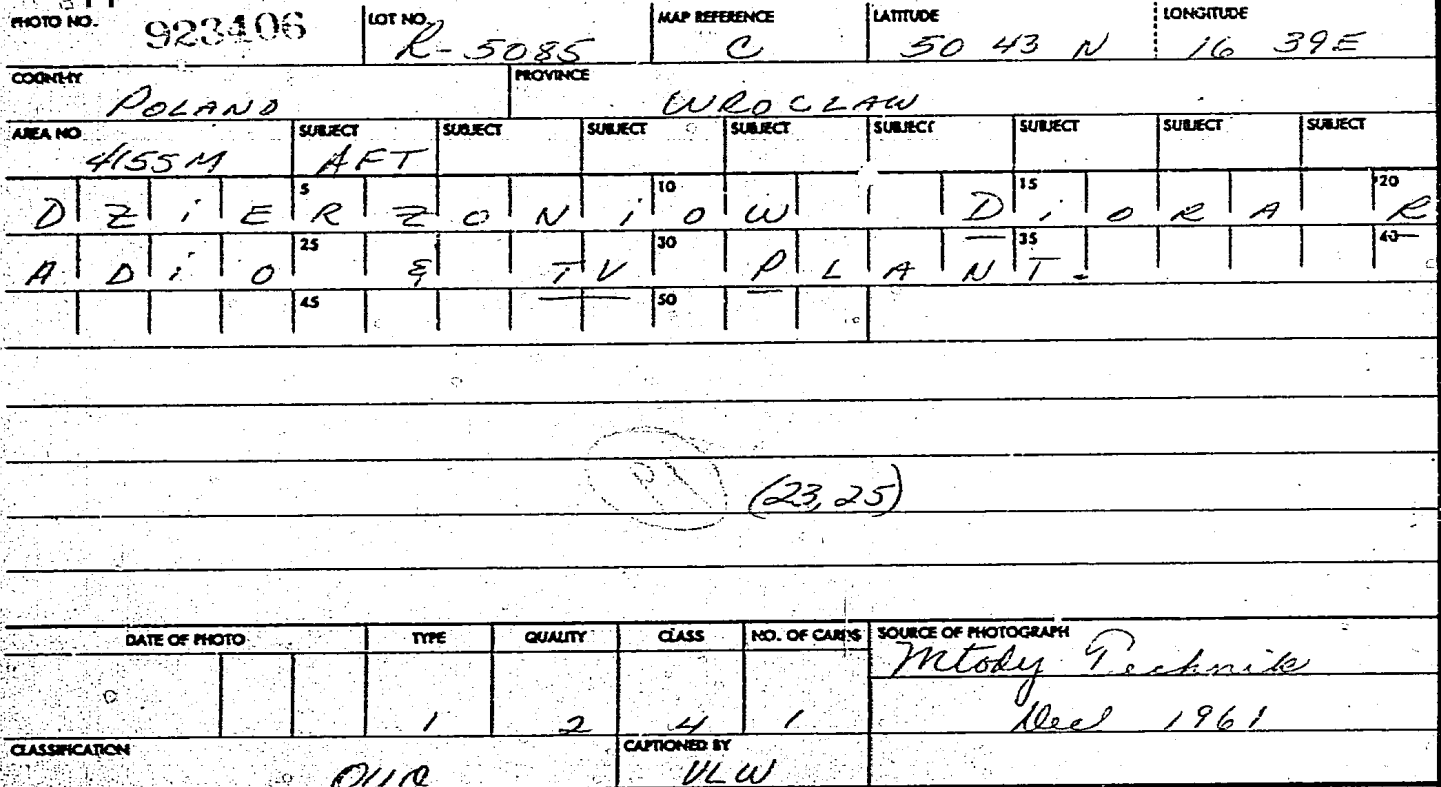 PHOTO NO. 923406 LOT NO. R-5085 MAP REFERENCE C LATITUDE 50 43 N LONGITUDE 16 39E
COUNTRY POLAND PROVINCE WROCLAW
AREA NO 4155M SUBJECT AFT SUBJECT SUBJECT SUBJECT SUBJECT SUBJECT SUBJECT SUBJECT
DZiERZONiOW DiORA R
ADiO & TV PLANT.
5 10 15 20
25 30 35 40
45 50
(23, 25)
DATE OF PHOTO TYPE 1 QUALITY 2 CLASS 4 NO. OF CARDS 1 SOURCE OF PHOTOGRAPH Mtody Technik
Dec 1961
CLASSIFICATION CAPTIONED BY VLW